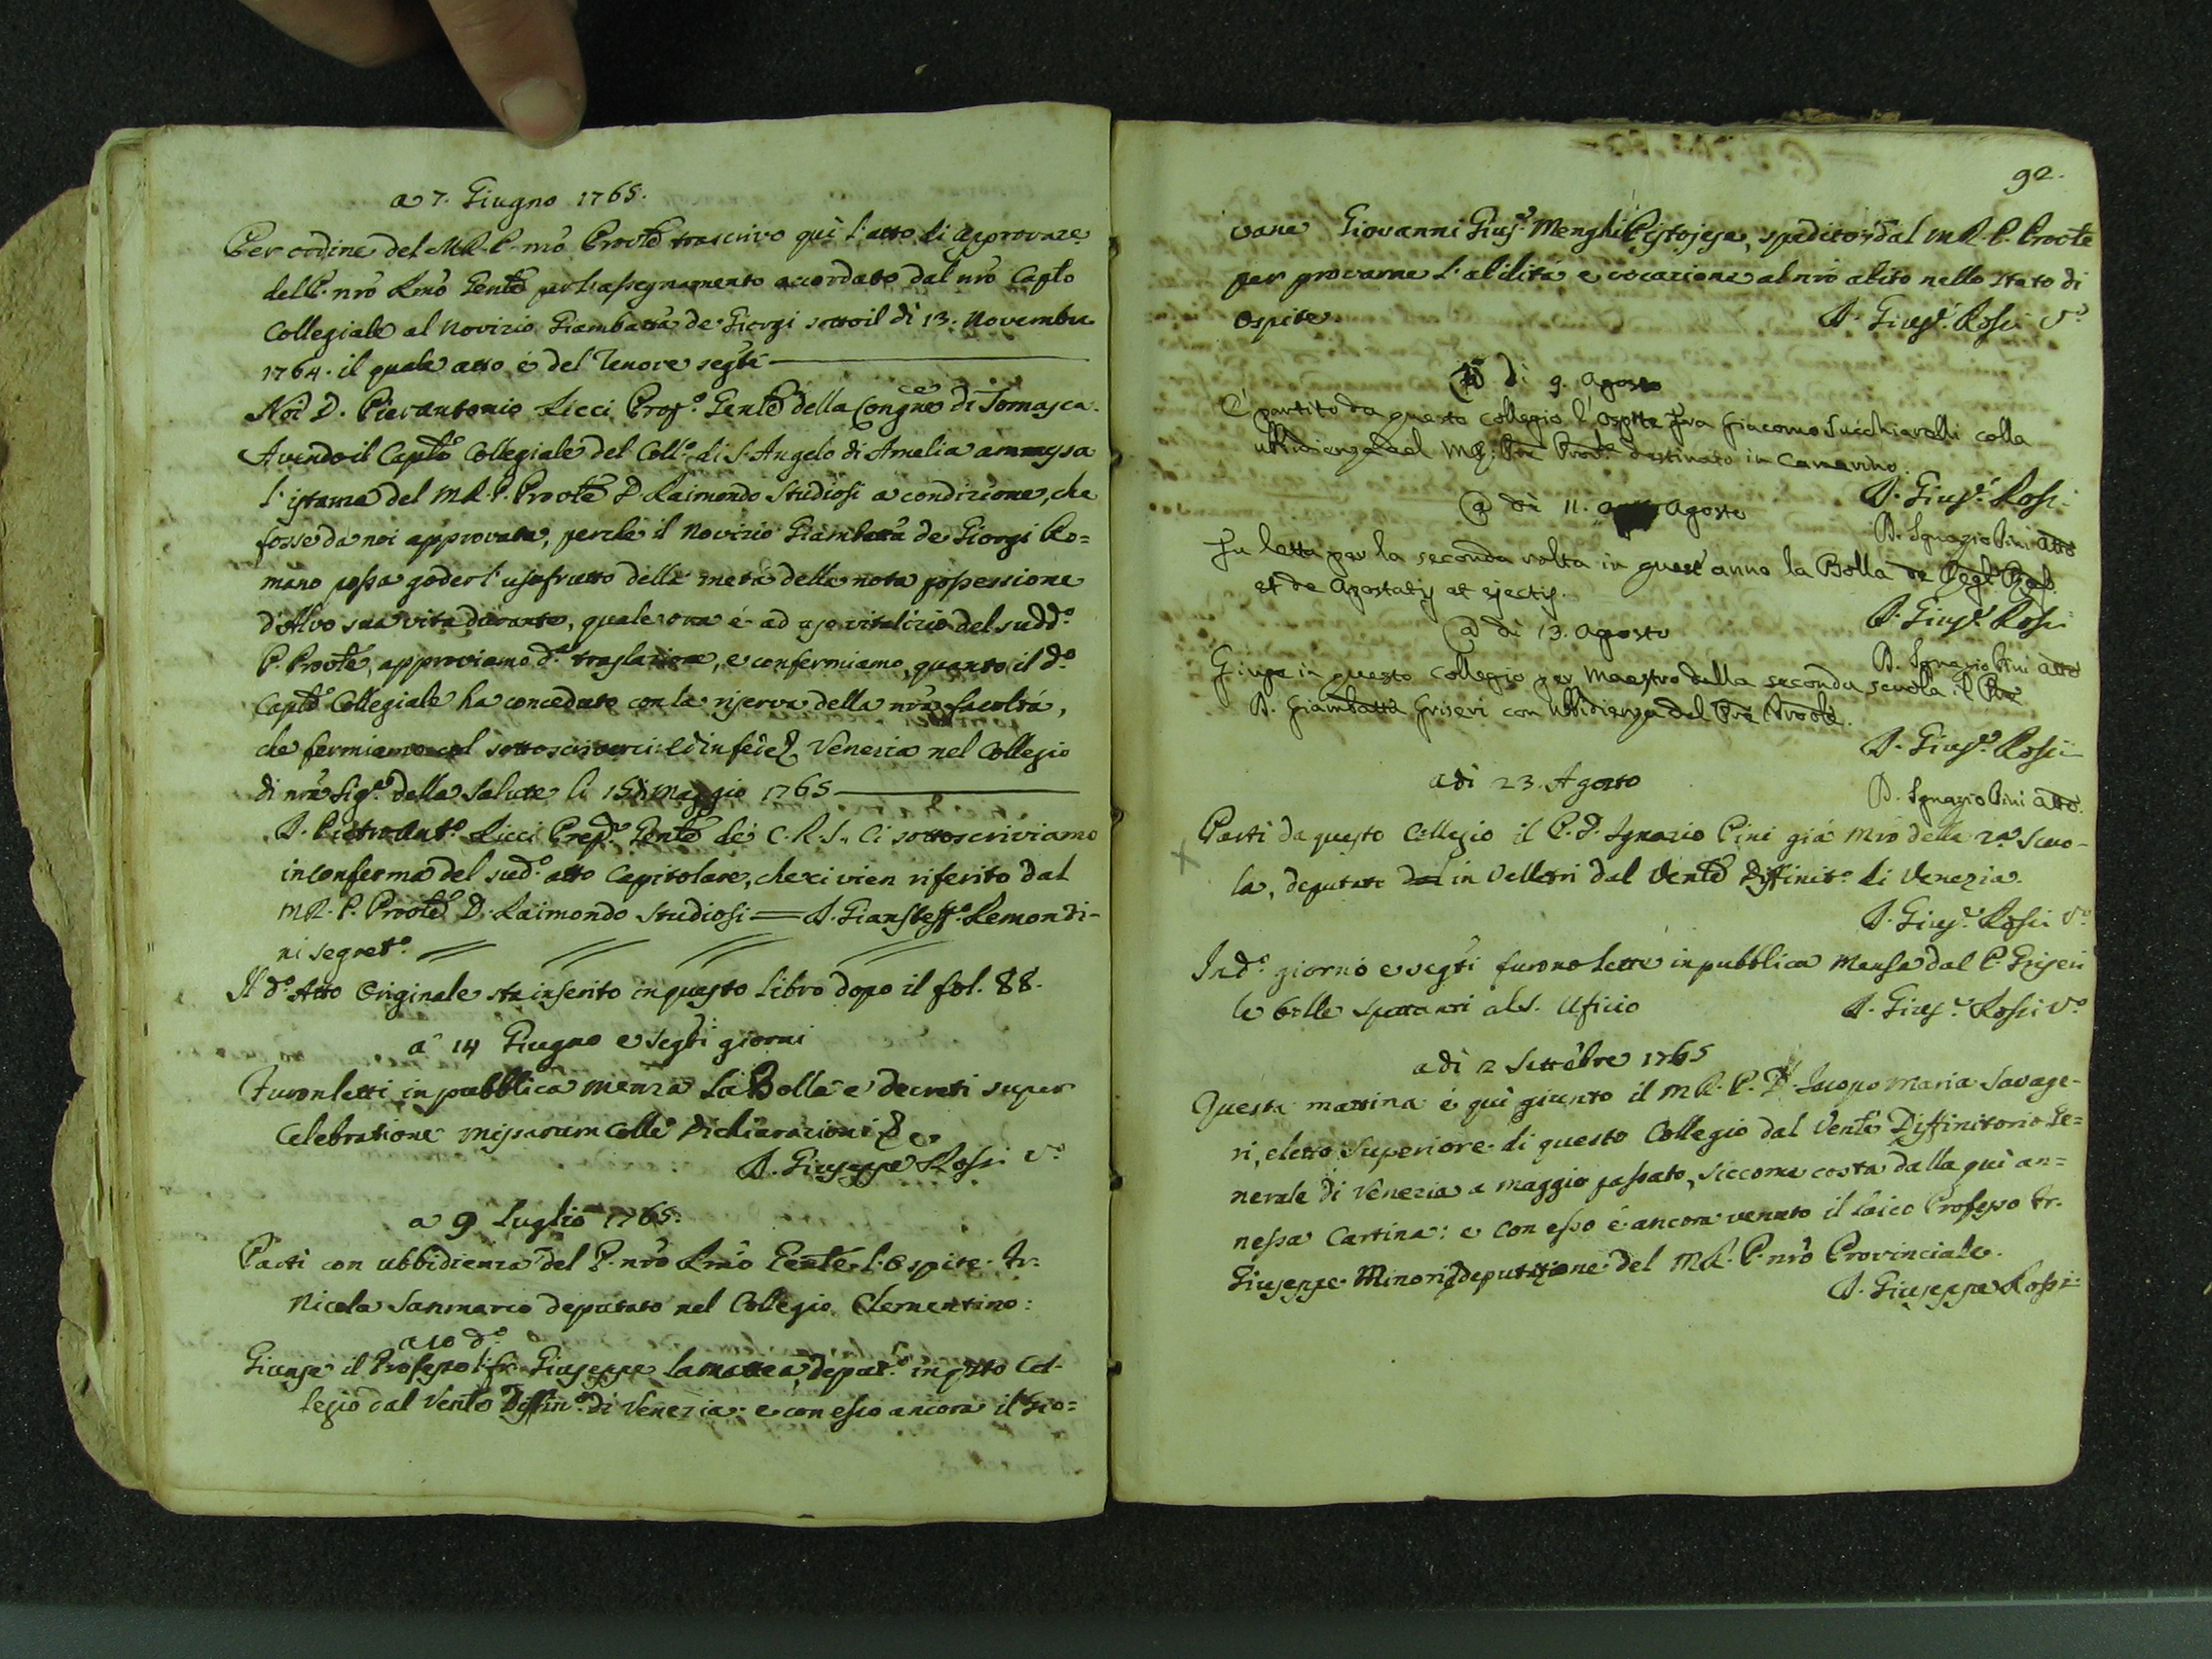 a 7. Giugno 1765.
Per ordine del M.R.P. nrõ Provle trascrivo quì l'atto di approvaze
del P. nrõ Rmõ Genle per l'assegnamento accordato dal nrõ Caplo
Collegiale al Novizio Giambatta de Giorgi sotto il dì 13. Novembre
1764. il quale atto è del Tenore segte
Noi D. Pierantonio Ricci Prep.o Genle della Congne di Somasca.
Avendo il Caplo Collegiale del Coll.o di S. Angelo di Amelia ammessa
l'istanza del M.R.P. Provle D. Raimondo Studiosi a condizione, che
fosse da noi approvata, perche il Novizio Giambatta de Giorgi Ro=
mano possa goder l'usufrutto della metà della nota possessione
d'Alvo sua vita durante, quale ora è ad uso vitalizio del sudd.o
P. Provle, approviamo d.a traslazione, e confermiamo, quanto il d.o
Caplo Collegiale ha conceduto con la riserva della nrã facoltà,
che fermiamo col sottoscriverci: Ed in fede &c Venezia nel Collegio
di nrã Sig.a della Salute li 15 di Maggio 1765
D. Pietro Ant.o Ricci Prep.o Genle de' C.R.S. Ci sottoscriviamo
in conferma del sud.o atto Capitolare, che ci vien riferito dal
M.R.P. Provle D. Raimondo Studiosi = D. Gian Steff.o Remondi-
ni Segret.o
Il d.o Atto Originale sta inserito in questo Libro dopo il fol. 88.
a 14 Giugno e segti giorni
Furon letti in pubblica menza la Bolla e decreti super
Celebratione missarum colle Dichiarazioni &c
D. Giuseppe Rossi V.e
a 9 Luglio 1765.
Partì con ubbidienza del P. nrõ Rmõ Genle l'Ospite Fr.
Nicola Sanmarco deputato nel Collegio Clementino:
a 10 d.o
Giunse il Professo Fr. Giuseppe Lamattea, deput.o in qsto Col-
legio dal Venle Diffin.o di Venezia: e con esso ancora il Gio=
92.
vane Giovanni Gius.e Menghi Pistojese, spedito dal M.R.P. Provle
per provarne l'abilità e vocazione al nrõ abito nello stato di
Ospite
D. Gius.e Rossi V.e
A dì 9. Agosto
È partito da questo Collegio l'Ospite Fra Giacomo Succhiarelli colla
ubbidienza del M.R. Pre Provle destinato in Camerino.
D. Gius.e Rossi
D. Ignazio Pini atto
@ dì 11. Agosto
Fu letta per la seconda volta in quest'anno la Bolla de
et de Apostatis et ejectis.
D. Gius.e Rossi
D. Ignazio Pini atto
@ dì 13. Agosto
Giunse in questo Collegio per Maestro della seconda scuola il Pre
D. Giambatta Griseri con ubbidienza del Pre Provle.
D. Gius.e Rossi
D. Ignazio Pini atto.
adì 23. Agosto
Partì da questo Collegio il P.D. Ignazio Pini già Mrõ della 2.a Scuo-
la, deputato in Velletri dal Venle Diffinit.o di Venezia.
D. Gius.e Rossi V.e
In d.o giorno e segti furono lette in pubblica Mensa dal P. Griseri
le bolle spettanti al S. Uficio
D. Gius.e Rossi V.e
adì 2 Settẽbre 1765
Questa mattina è quì giunto il M.R.P. D. Jacopo Maria Savage-
ri, eletto Superiore di questo Collegio dal Venle Diffinitorio Ge=
nerale di Venezia a maggio passato, siccome costa dalla quì an=
nessa Cartina: e con esso è ancora venuto il Laico Professo Fr.
Giuseppe Minori deputazione del M.R.P. nrõ Provinciale.
D. Giuseppe Rossi